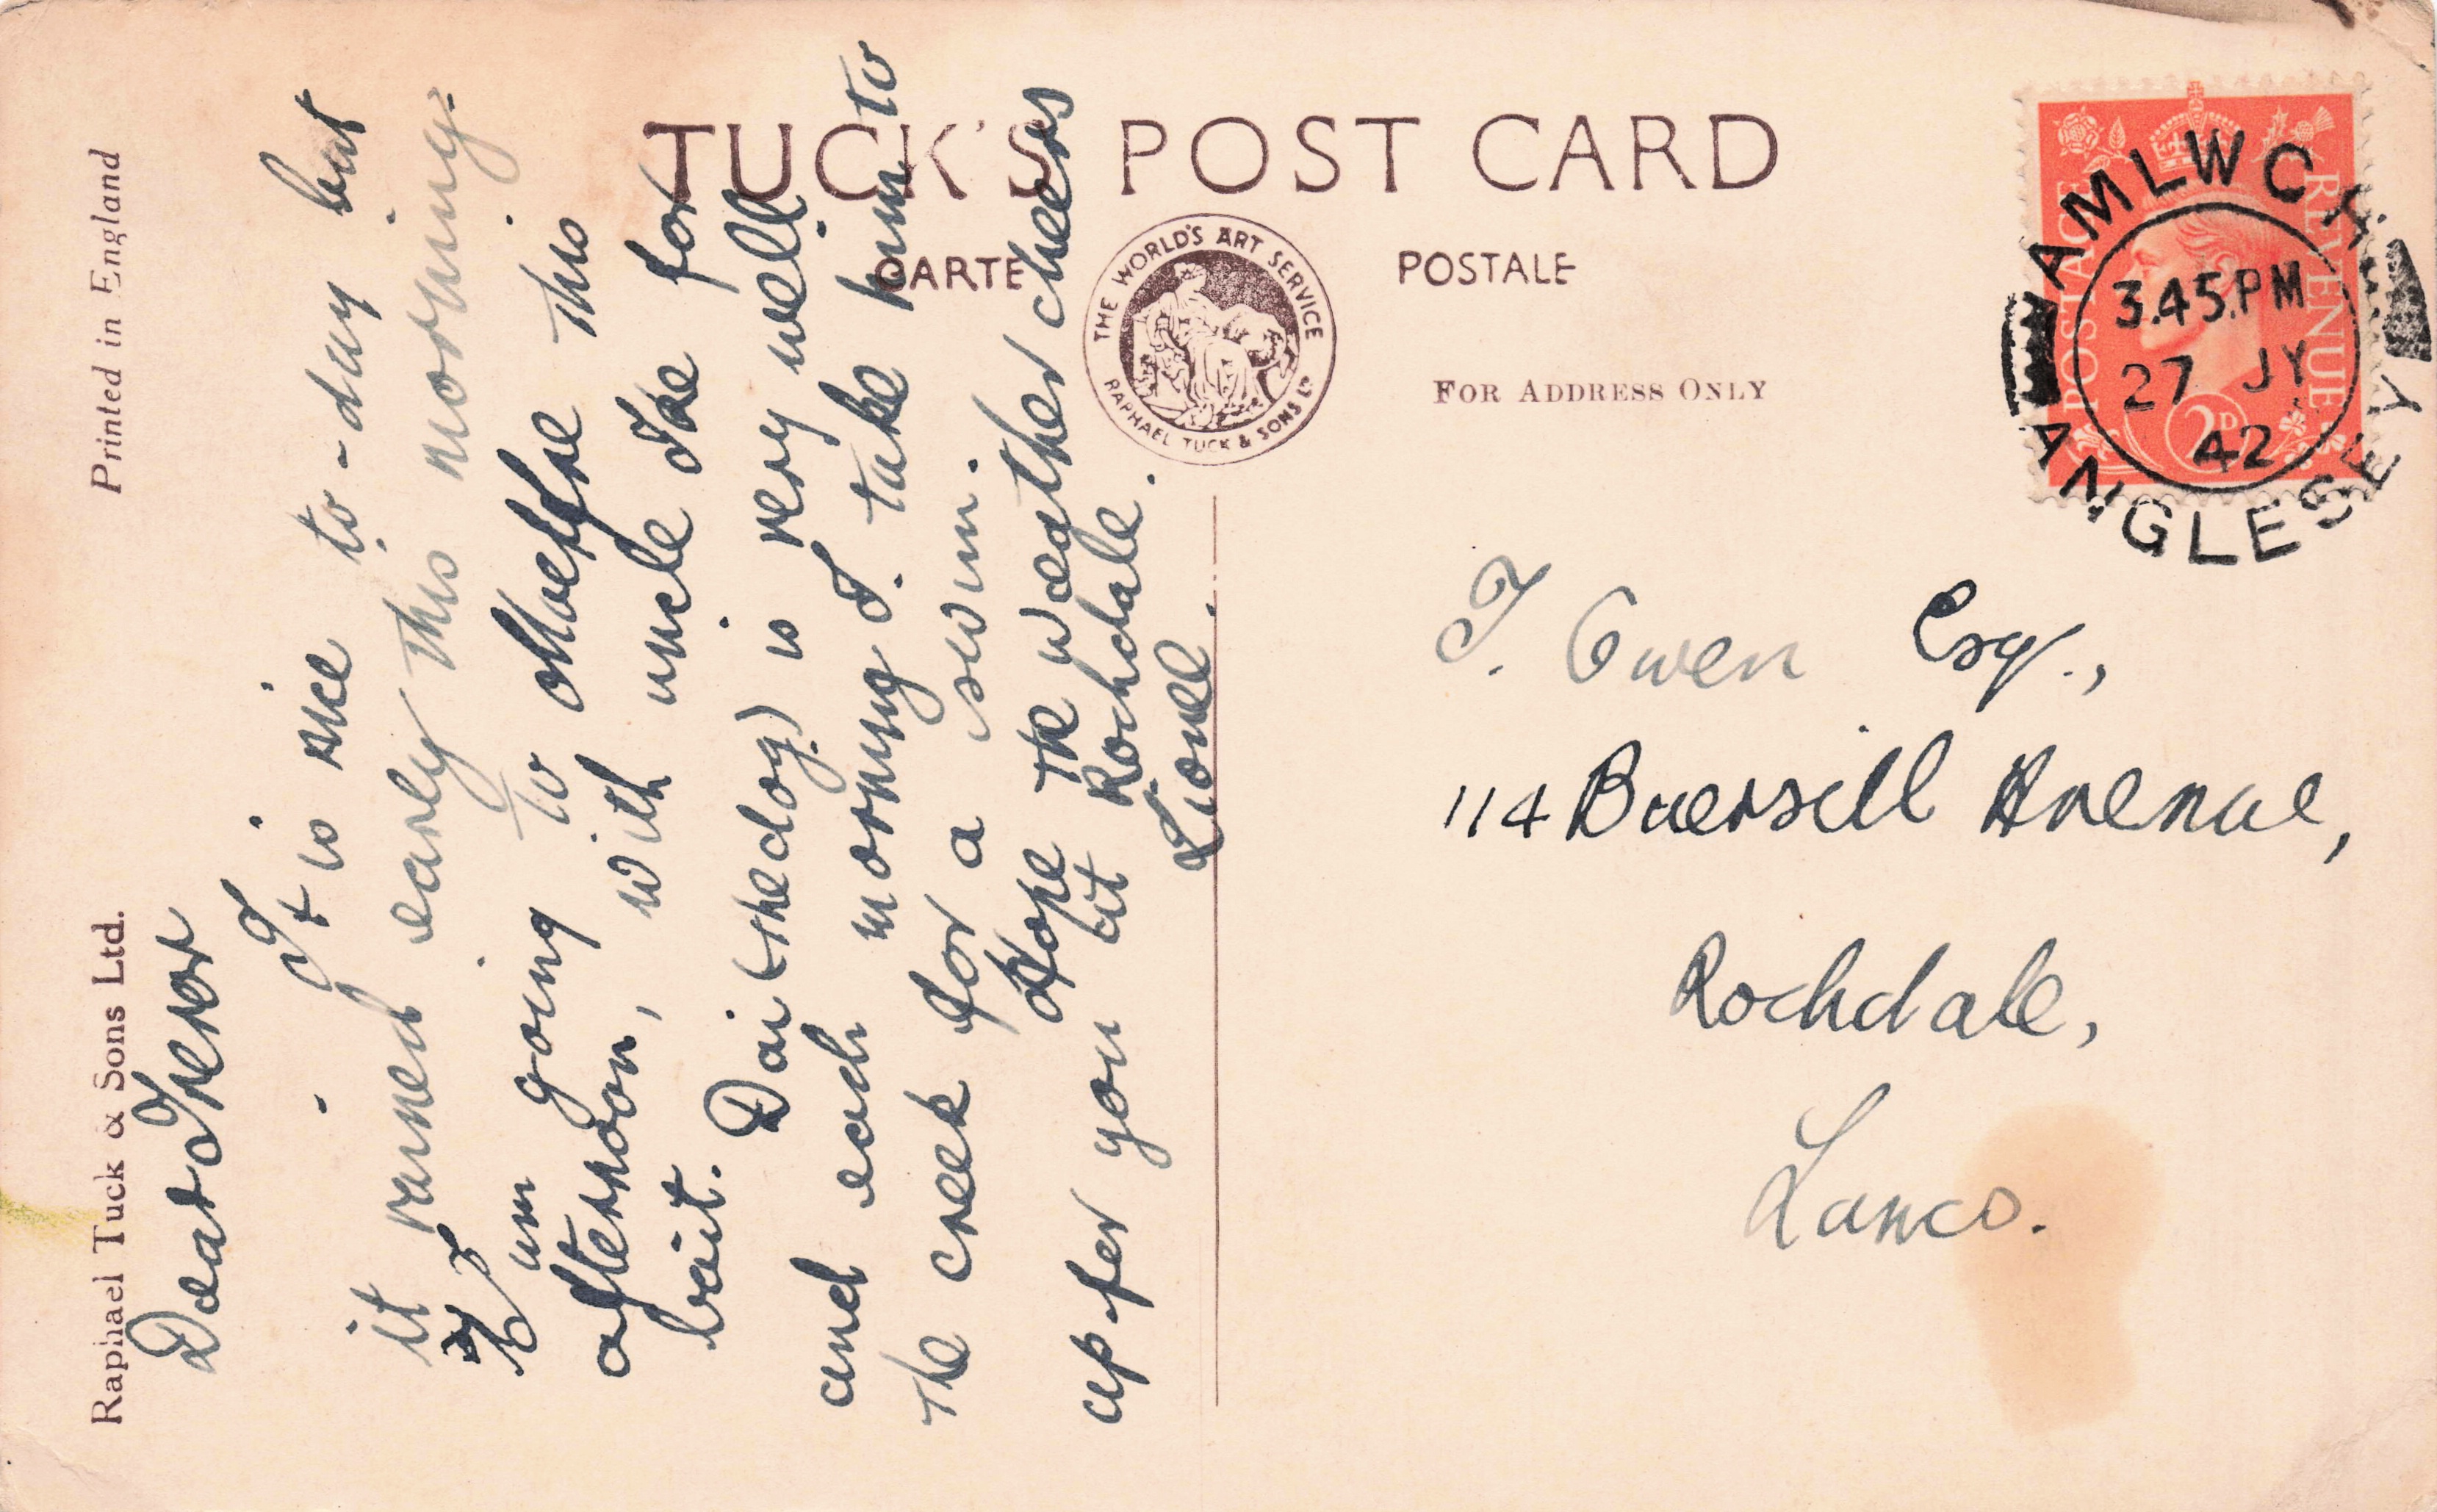 Raphael Tuck & Sons Ltd.
Printed in England
TUCK'S POST CARD
CARTE POSTALE
THE WORLD'S ART SERVICE
RAPHAEL TUCK & SONS LTD
FOR ADDRESS ONLY
POSTAGE REVENUE
2D
AMLWCH
3.45.PM
27 JY
42
ANGLESEY
Dear Trevor
It is nice to-day but
it rained early this morning.
I am going to Moelfre this
afternoon, with uncle Joe for
bait. Dai (the dog) is very well
and each morning I take him to
the creek for a swim.
Hope the weather cheers
up for you at Rochdale.
Lionel.
T. Owen Esq.,
114 Buersill Avenue,
Rochdale,
Lancs.